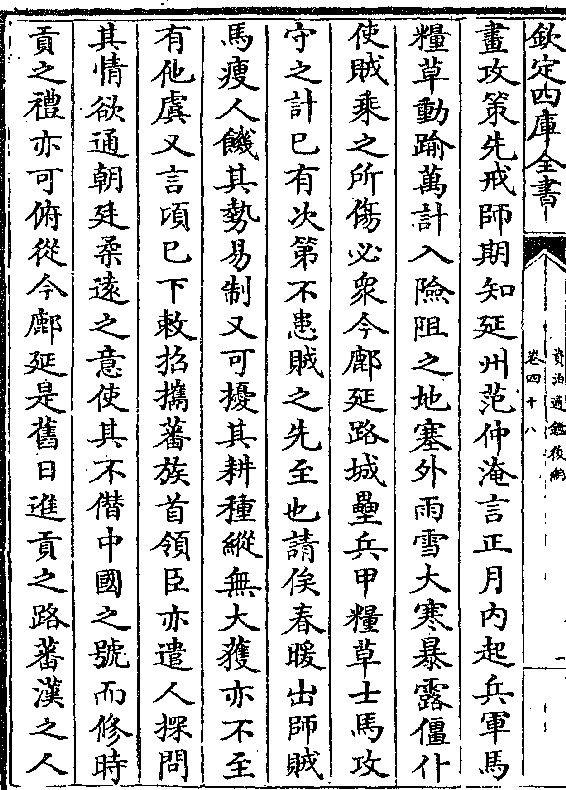 欽定四庫全書
資治通鑑後編
卷四十八
一
畫攻策先戒師期知延州范仲淹言正月內起兵軍馬
糧草動踰萬計入險阻之地塞外雨雪大寒暴露僵仆
使賊乘之所傷必衆今鄜延路城壘兵甲糧草士馬攻
守之計已有次第不患賊之先至也請俟春暖出師賊
馬瘦人饑其勢易制又可擾其耕種縱無大獲亦不至
有他虞又言項已下敕招攜蕃族首領臣亦遣人探問
其情欲通朝廷柔遠之意使其不僭中國之號而修時
貢之禮亦可俯從今鄜延是舊日進貢之路蕃漢之人